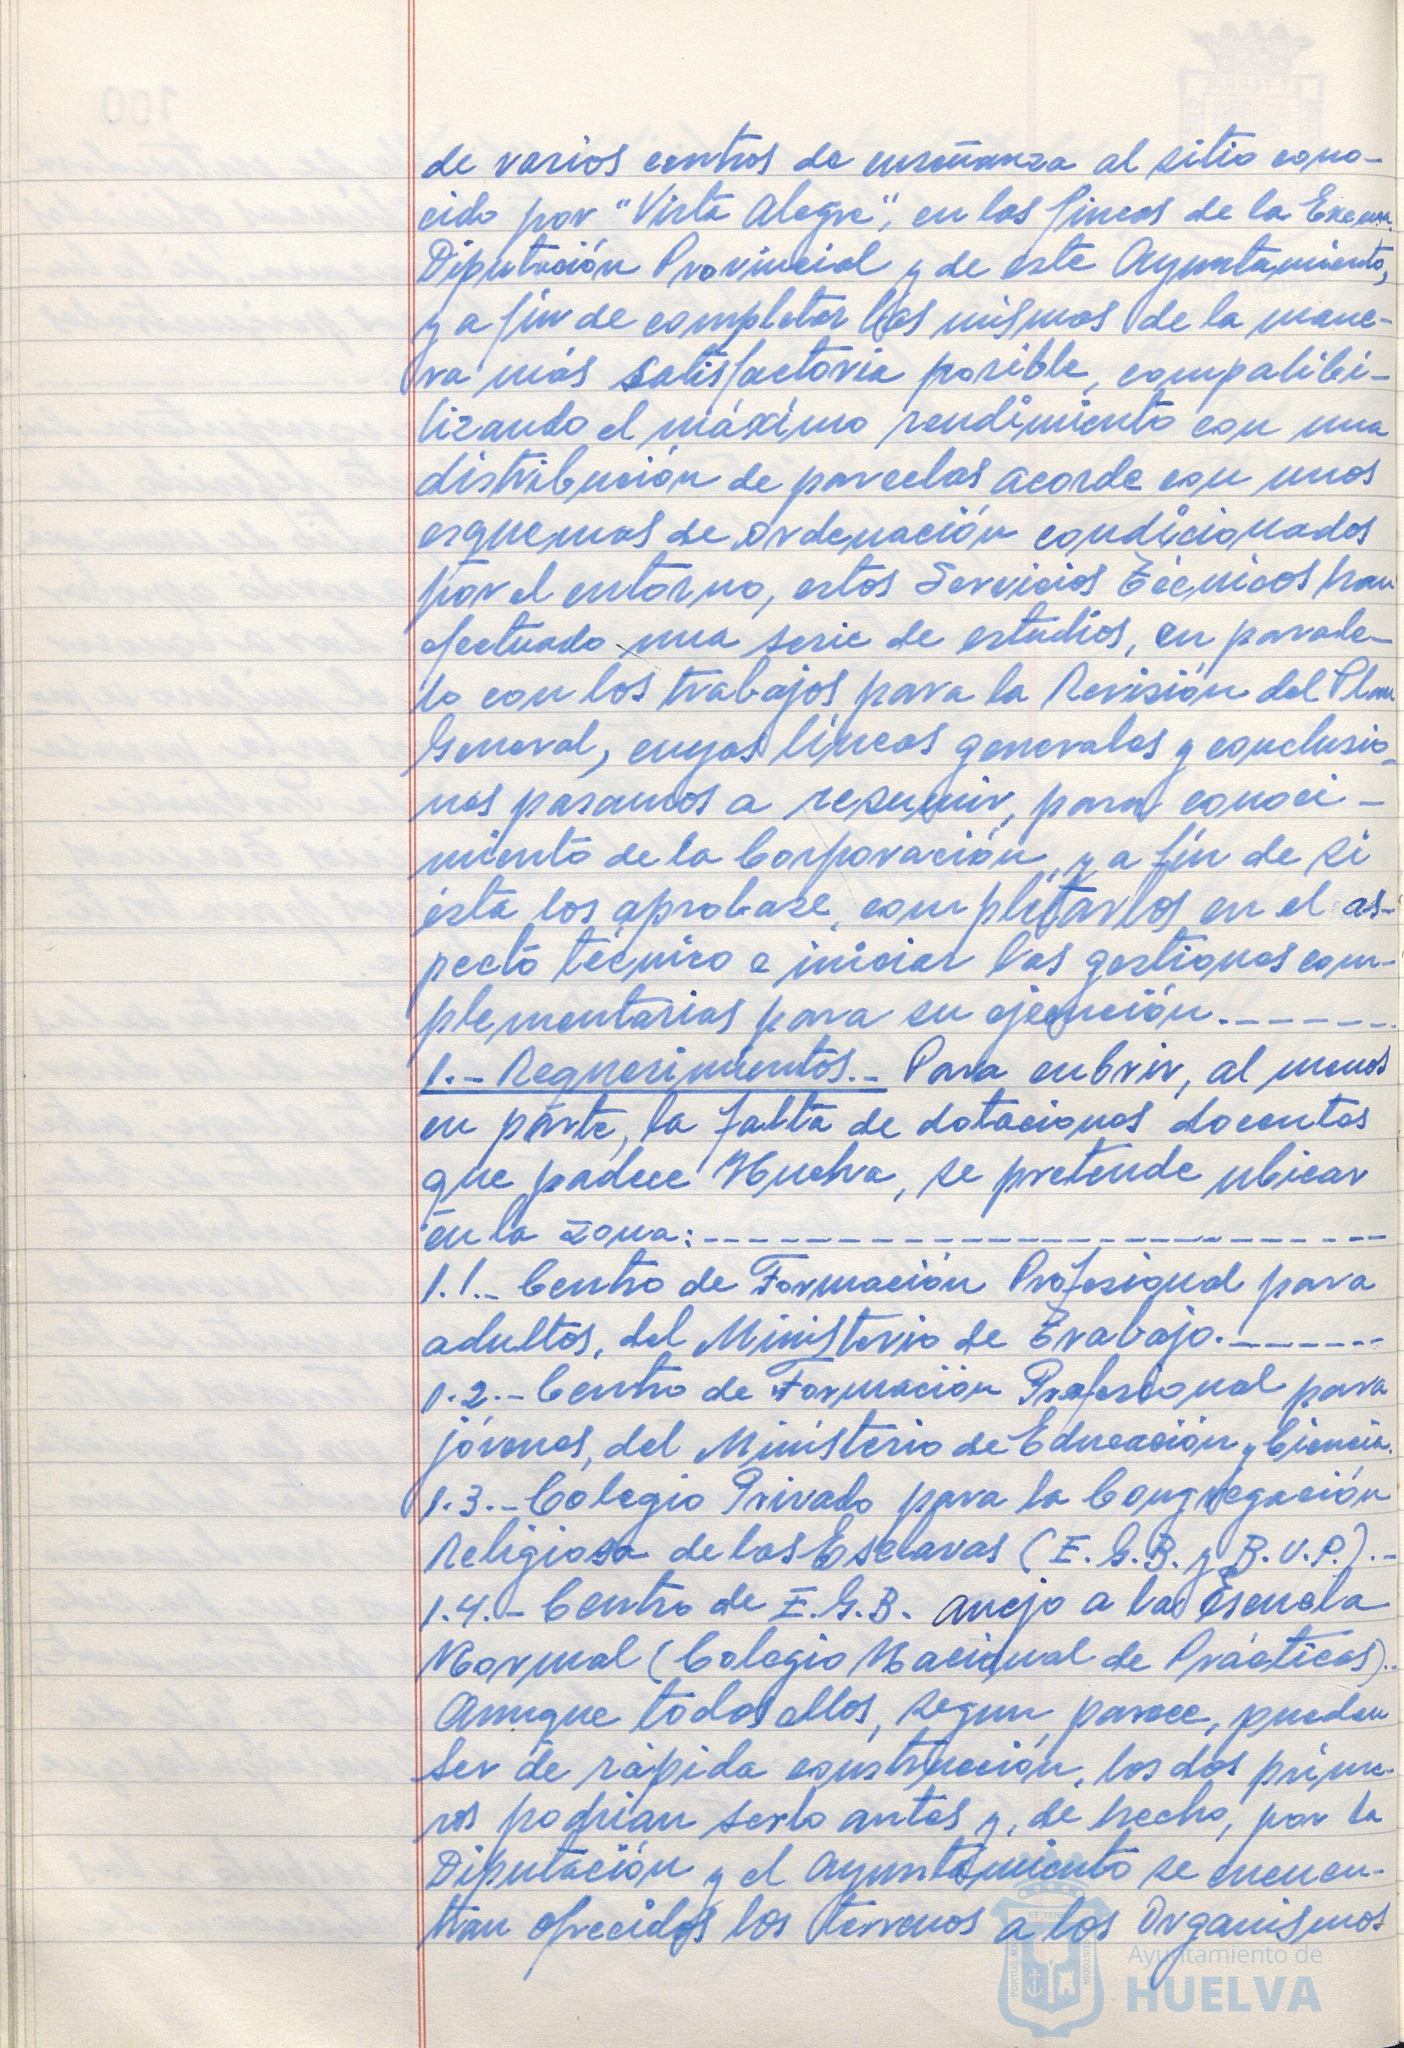 de varios centros de enseñanza al sitio cono-
cido por "Vista Alegre", en las fincas de la Excma.
Diputación Provincial y de este Ayuntamiento,
y a fin de completar los mismos de la mane-
ra más satisfactoria posible, compatibi-
lizando el máximo rendimiento con una
distribución de parcelas acorde con unos
esquemas de ordenación condicionados
por el entorno, estos Servicios Técnicos han
efectuado una serie de estudios, en parale-
lo con los trabajos para la Revisión del Plan
General, cuyas líneas generales y conclusio-
nes pasamos a resumir, para conoci-
miento de la Corporación, y a fin de si
ésta los aprobase, completarlos en el as-
pecto técnico e iniciar las gestiones com-
plementarias para su ejecución.------
1.- Requerimientos.- Para cubrir, al menos
en parte, la falta de dotaciones docentes
que padece Huelva, se pretende ubicar
en la zona:-----------------------
1.1.- Centro de Formación Profesional para
adultos, del Ministerio de Trabajo.------
1.2.- Centro de Formación Profesional para
jóvenes, del Ministerio de Educación y Ciencia.
1.3.- Colegio Privado para la Congregación
Religiosa de las Esclavas (E.G.B. y B.U.P.).-
1.4.- Centro de E.G.B. anejo a la Escuela
Normal (Colegio Nacional de Prácticas).
Aunque todos ellos, segun parece, pueden
ser de rápida construcción, los dos prime-
ros podrían serlo antes y, de hecho, por la
Diputación y el Ayuntamiento se encuen-
tran ofrecidos los terrenos a los Organismos
Ayuntamiento de
HUELVA